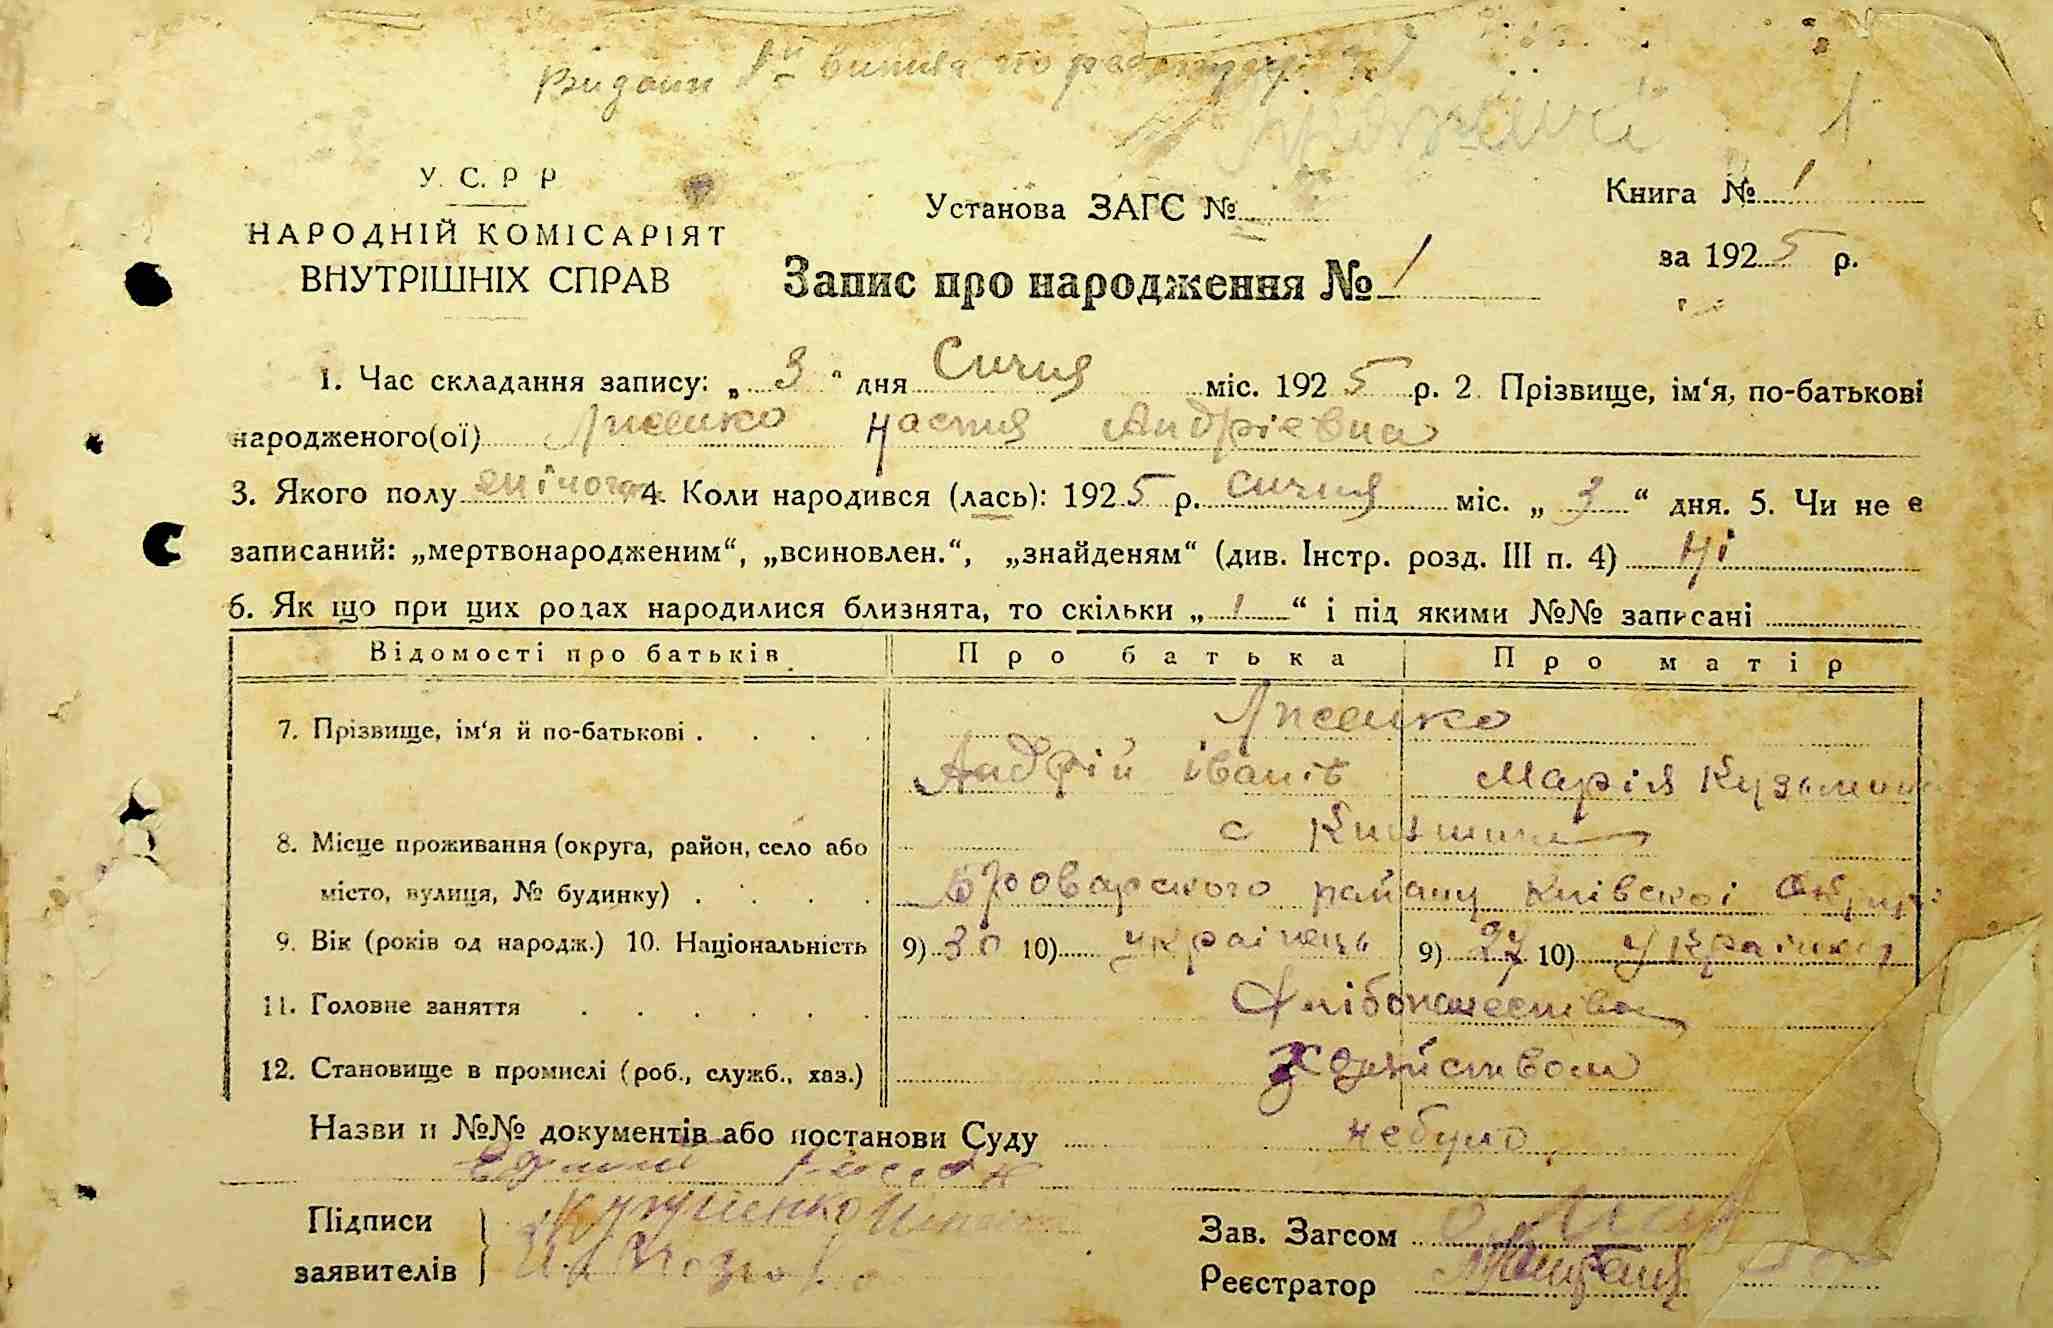 Видани
У. С. Р Р
НАРОДНІЙ КОМІСАРІЯТ
ВНУТРІШНІХ СПРАВ
Установа ЗАГС №
Книга № 1
за 1925 р.
Запис про народження № 1
1. Час складання запису: „ 3 “ дня Сичня міс. 1925 р. 2. Прізвище, ім‘я, по-батькові
народженого(ої) Лисенко Настя Андрієвна
3. Якого полу жіночого 4. Коли народився (лась): 1925 р. сичня міс. „ 3 “ дня. 5. Чи не є
записаний: „мертвонародженим“, „всиновлен.“, „знайденям“ (див. Інстр. розд. III п. 4) Ні
6. Як що при цих родах народилися близнята, то скільки „ 1 “ і під якими №№ записані
Відомості про батьків. Про батька Про матір
7. Прізвище, ім‘я й по-батькові . . . . Лисенко
Андрій Іванів Марія Кузьмин
8. Місце проживання (округа, район, село або с
місто, вулиця, № будинку) . . . . Броварского району Київскоі Округи
9. Вік (років од народж.) 10. Національність 9) 30 10) українець 9) 27 10) українка
11. Головне заняття . . . . . . Хлібопашество
12. Становище в промислі (роб., служб., хаз.) хозяйством
Назви и №№ документів або постанови Суду небуло
Підписи
заявителів
Зав. Загсом
Реєстратор